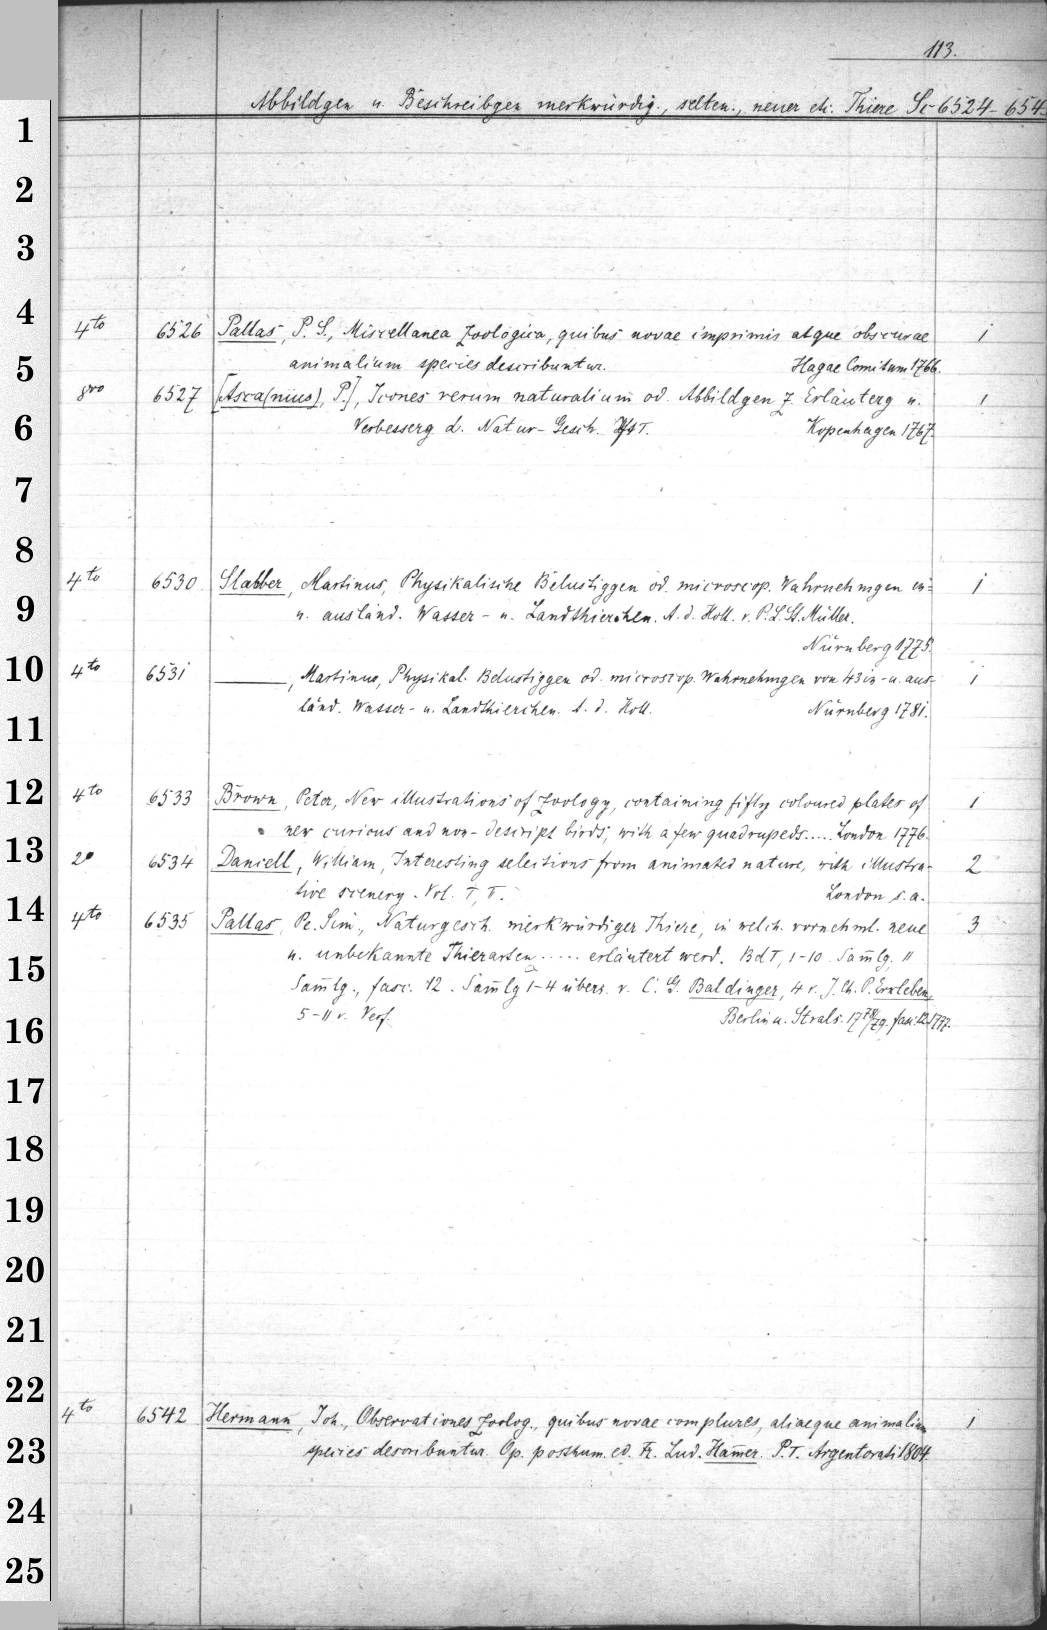 113.
Abbildgen u. Beschreibgen merkwürdig., selten., neuer etc. Thiere Sc-6524-654-
1
2
3
4
4to 6526 Pallas, P. S., Miscellanea Zoologica, quibus novae imprimis atque obscurae 1
5
animalium species describuntur. Hagae Comitum 1766.
8vo 6527 [Asca(nius), P.], Icones rerum naturalium od. Abbildgen z. Erläuterg u. 1
6
Verbesserg d. Natur-Gesch. T. Kopenhagen 1767.
7
8
4to 6530 Slabber, Martinus, Physikalische Belustiggen od. microscop. Wahrnehmgen in=1
9
u. ausländ. Wasser- u. Landthierchen. A. d. Holl. v. P. L. St. Müller.
Nürnberg 1775.
10
4to 6531 ———, Martinus, Physikal. Belustiggen od. microscop. Wahrnehmgen von 43 in- u. aus- 1
länd. Wasser- u. Landthierchen. A. d. Holl. Nürnberg 1781.
11
12
4to 6533 Brown, Peter, New illustrations of zoology, containing fifty coloured plates of 1
new curious and non-descript birds, with a few quadrupeds..... London 1776.
13
2o 6534 Daniell, William, Interesting selections from animated nature, with illustra- 2
tive scenery. Vol. I, II. London s. a.
14
4to 6535 Pallas, Pe. Sim., Naturgesch. merkwürdiger Thiere, in welch. vornehml. neue 3
15
u. unbekannte Thierarten ..... erläutert werd. Bd I, 1-10. Sam̅lg. 11
Sam̅lg., fasc. 12. Sam̅lg 1-4 übers. v. E. G. Baldinger, 4 v. J. Ch. P. Erxleben,
16
5-11 v. Verf. Berlin u. Strals. 1774/79. fasc. 12. 1777.
17
18
19
20
21
22
4to 6542 Hermann, Joh., Observationes zoolog., quibus novae complures, aliaeque animalium 1
23
species describuntur. Op. posthum. ed. Fr. Lud. Ham̅er. P. I. Argentorati 1804.
24
25